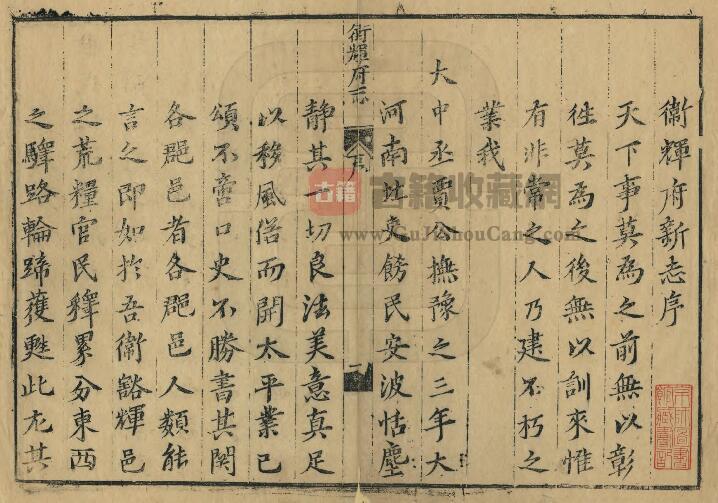 衛輝府新志序
天下事莫為之前無以彰
徃莫為之後無以訓來惟
有非常之人乃建不朽之
業我
大中丞賈公撫豫之三年大
河南北吏飭民安波恬塵
衛輝府志
序
一
靜其一切良法美意真足
以移風俗而開太平業已
頌不啻口史不勝書其関
各郡邑者各郡邑人類能
言之即如於吾衛豁輝邑
之荒糧官民釋累分東西
之驛路輪蹄獲甦此尤其
古籍
古籍收藏網
www.GuJiShouCang.com